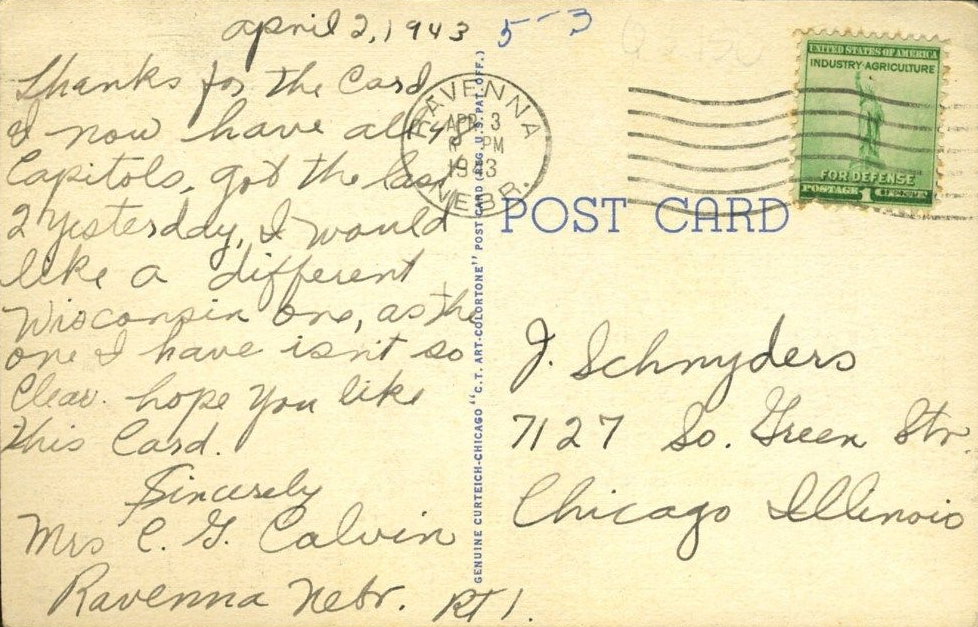 april 2, 1943
5-3
Thanks for the Card
I now have all 48
Capitols, got the last
2 yesterday, I would
like a different
Wisconsin one, as the
one I have isn't so
Clear. hope you like
this Card.
Sincerely
Mrs C. G. Calvin
Ravenna Nebr. RT 1.
RAVENNA
APR 3
PM
1943
NEBR.
GENUINE CURTEICH-CHICAGO "C.T. ART-COLORTONE" POST CARD (REG. U.S. PAT. OFF.)
UNITED STATES OF AMERICA
INDUSTRY·AGRICULTURE
FOR DEFENSE
POSTAGE 1 CENT
POST CARD
J. Schnyders
7127 So. Green Str.
Chicago Illinois